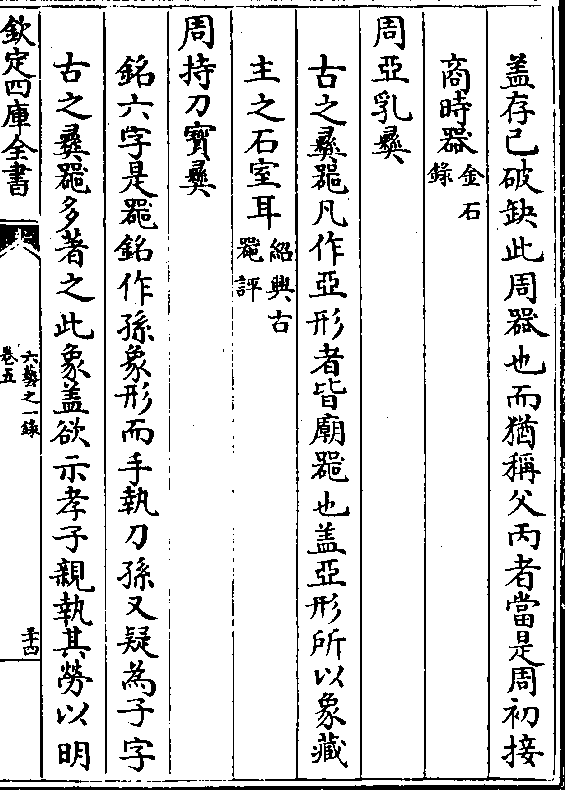 盖存已破缺此周器也而猶稱父丙者當是周初接
商時器金石錄
周亞乳彞
古之彞器凡作亞形者皆廟器也盖亞形所以象藏
主之石室耳紹興古器評
周持刀寳彞
銘六字是器銘作孫象形而手執刀孫又疑為子字
古之彞器多著之此象盖欲示孝子親執其勞以明
欽定四庫全書
六藝之一錄
卷五
二十四